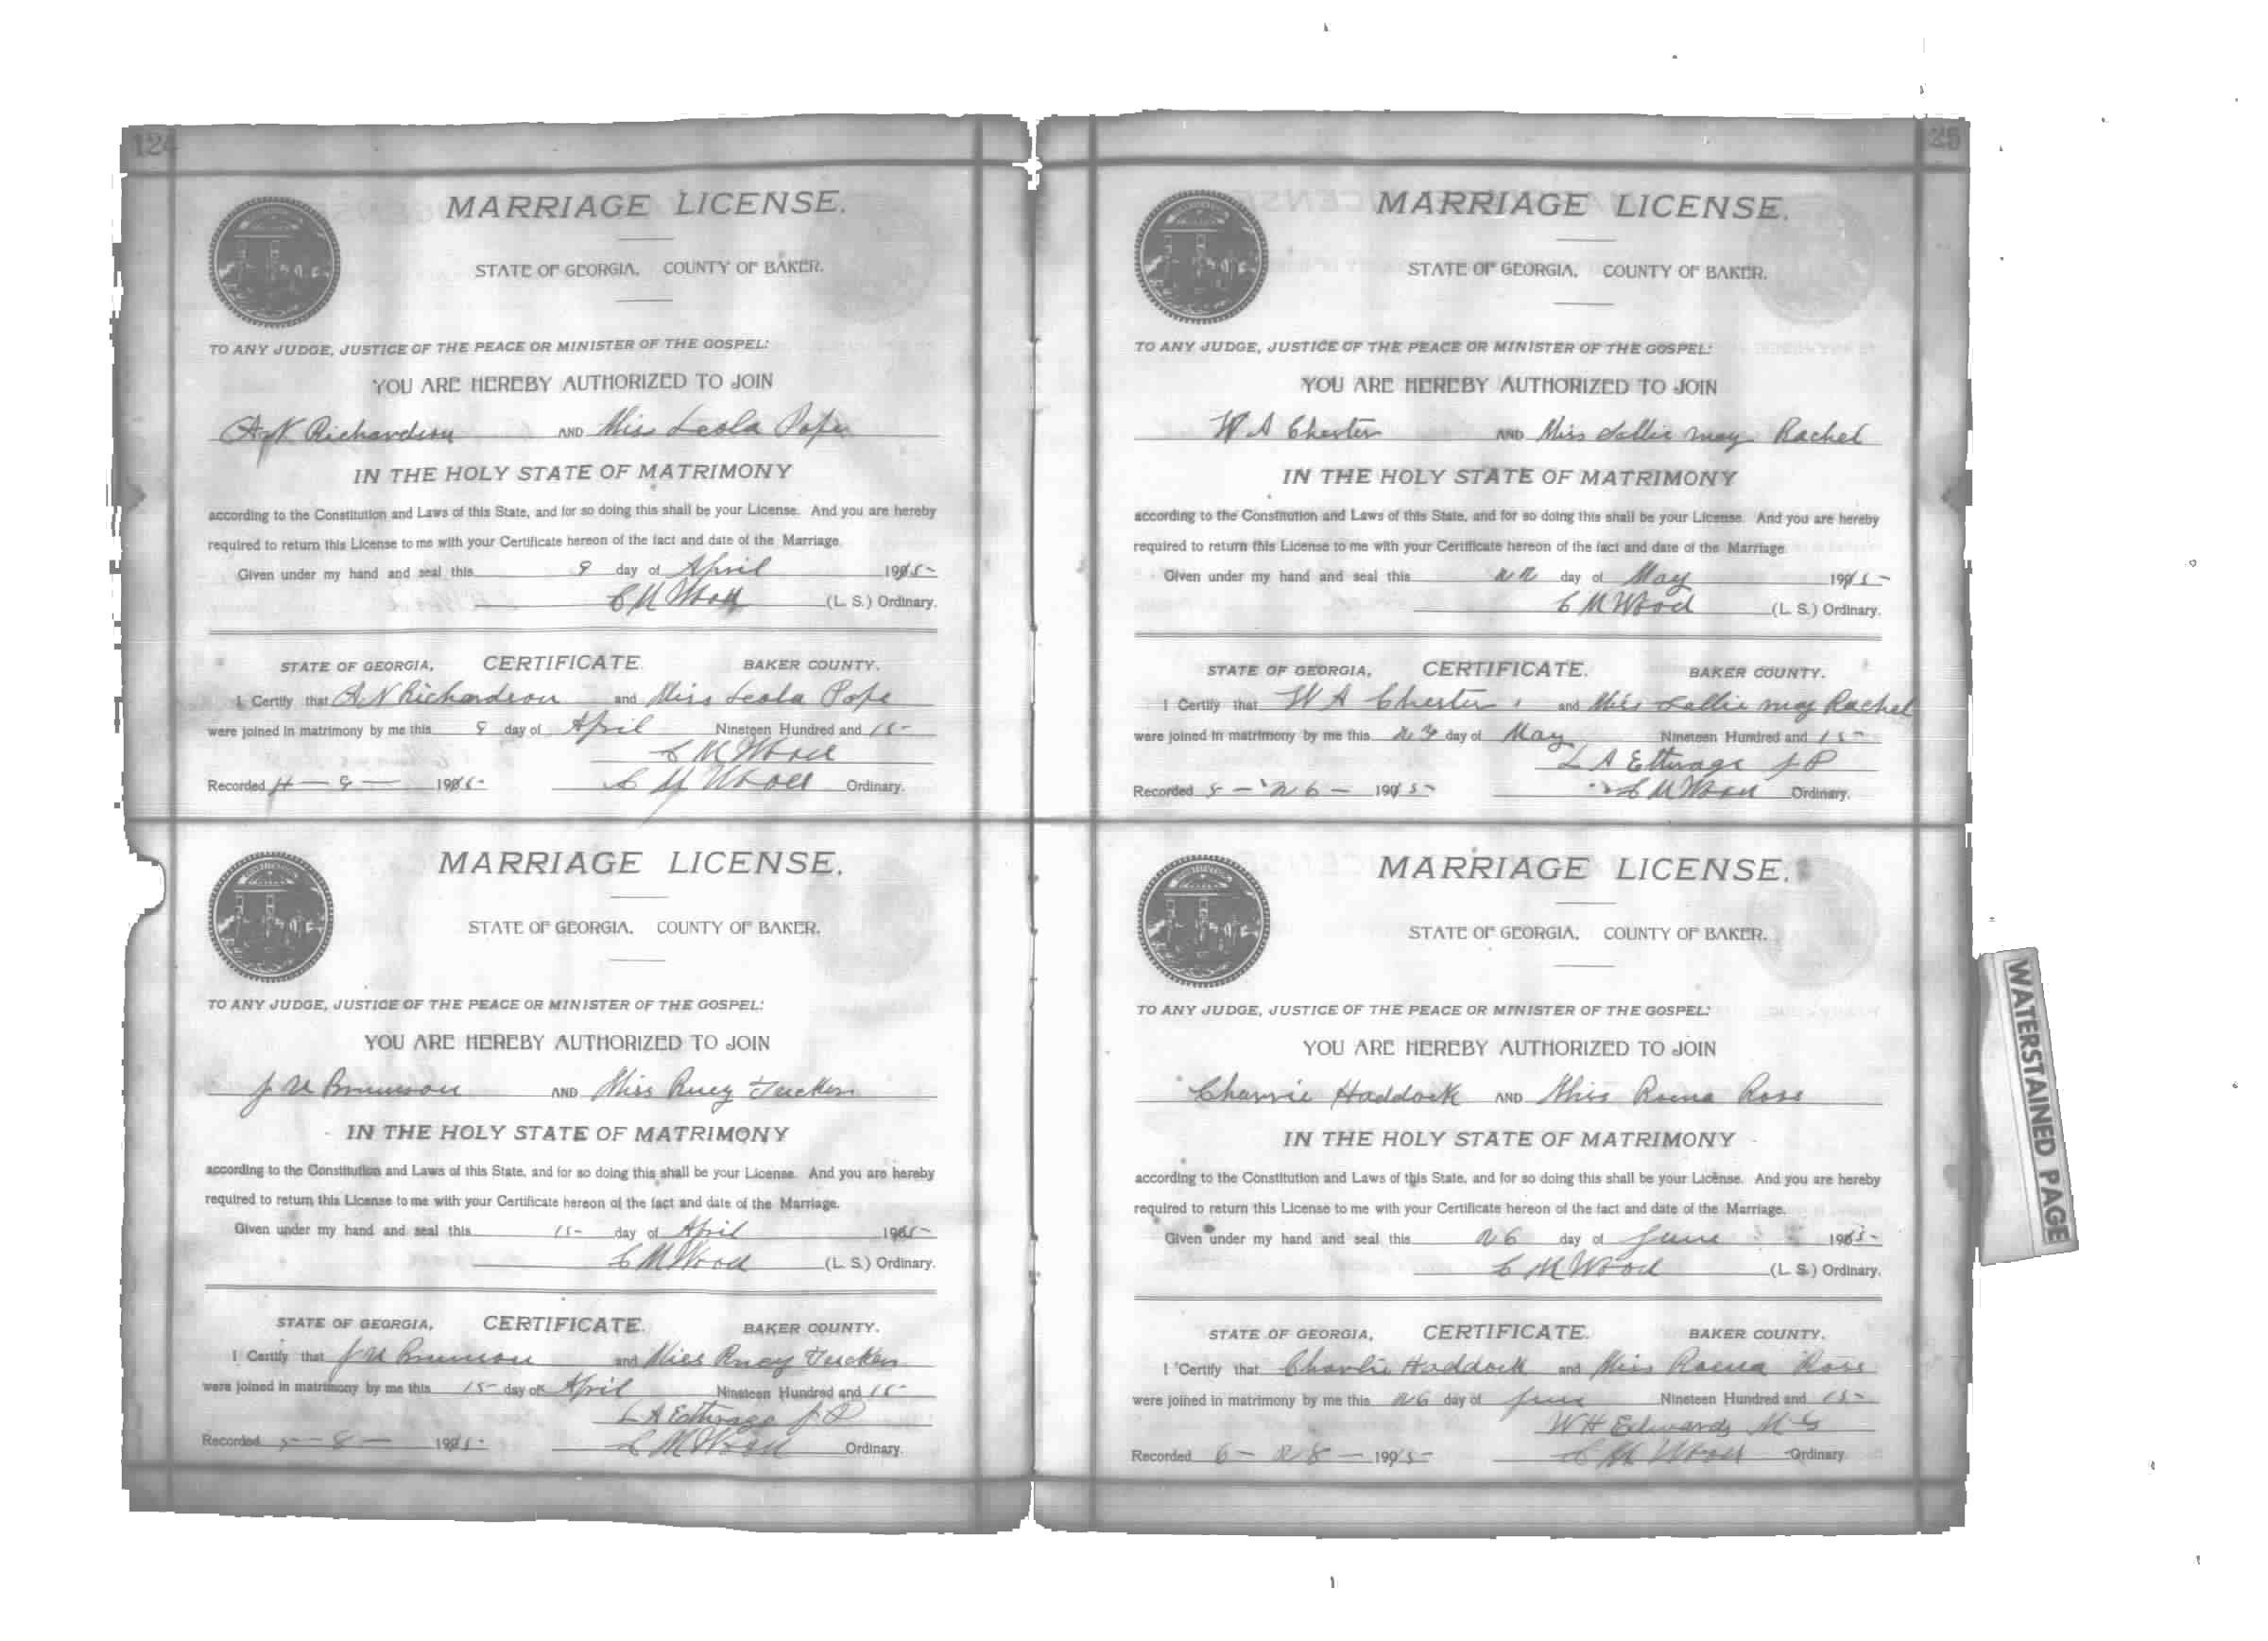 124
MARRIAGE LICENSE.
STATE OF GEORGIA. COUNTY OF BAKER.
TO ANY JUDGE, JUSTICE OF THE PEACE OR MINISTER OF THE GOSPEL:
YOU ARE HEREBY AUTHORIZED TO JOIN
A N Richardson AND Miss Leola Pope
IN THE HOLY STATE OF MATRIMONY
according to the Constitution and Laws of this State, and for so doing this shall be your License. And you are hereby
required to return this License to me with your Certificate hereon of the fact and date of the Marriage.
Given under my hand and seal this 8 day of April 1915
C M Wood (L. S.) Ordinary.
STATE OF GEORGIA, CERTIFICATE. BAKER COUNTY.
I Certify that A N Richardson and Miss Leola Pope
were joined in matrimony by me this 8 day of April Nineteen Hundred and 15
C M Wood
Recorded 4-8- 1915 C M Wood Ordinary.
MARRIAGE LICENSE.
STATE OF GEORGIA. COUNTY OF BAKER.
TO ANY JUDGE, JUSTICE OF THE PEACE OR MINISTER OF THE GOSPEL:
YOU ARE HEREBY AUTHORIZED TO JOIN
Brunson AND Miss Tucker
IN THE HOLY STATE OF MATRIMONY
according to the Constitution and Laws of this State, and for so doing this shall be your License. And you are hereby
required to return this License to me with your Certificate hereon of the fact and date of the Marriage.
Given under my hand and seal this 15 day of April 1915
C M Wood (L. S.) Ordinary.
STATE OF GEORGIA, CERTIFICATE. BAKER COUNTY.
I Certify that Brunson and Miss Tucker
were joined in matrimony by me this 15 day of April Nineteen Hundred and 15
L A Ethrage J P
Recorded 5-8- 1915 C M Wood Ordinary.
125
MARRIAGE LICENSE.
STATE OF GEORGIA. COUNTY OF BAKER.
TO ANY JUDGE, JUSTICE OF THE PEACE OR MINISTER OF THE GOSPEL:
YOU ARE HEREBY AUTHORIZED TO JOIN
W A Chester AND Miss Lallie may Rachel
IN THE HOLY STATE OF MATRIMONY
according to the Constitution and Laws of this State, and for so doing this shall be your License. And you are hereby
required to return this License to me with your Certificate hereon of the fact and date of the Marriage.
Given under my hand and seal this 22 day of May 1915
C M Wood (L. S.) Ordinary.
STATE OF GEORGIA, CERTIFICATE. BAKER COUNTY.
I Certify that W A Chester and Miss Lallie may Rachel
were joined in matrimony by me this day of May Nineteen Hundred and 15
L A Ethrage J P
Recorded 5-26- 1915 C M Wood Ordinary.
MARRIAGE LICENSE.
STATE OF GEORGIA. COUNTY OF BAKER.
TO ANY JUDGE, JUSTICE OF THE PEACE OR MINISTER OF THE GOSPEL:
YOU ARE HEREBY AUTHORIZED TO JOIN
Charlie Haddock AND Miss Roena Rose
IN THE HOLY STATE OF MATRIMONY
according to the Constitution and Laws of this State, and for so doing this shall be your License. And you are hereby
required to return this License to me with your Certificate hereon of the fact and date of the Marriage.
Given under my hand and seal this 26 day of June 1915
C M Wood (L. S.) Ordinary.
STATE OF GEORGIA, CERTIFICATE. BAKER COUNTY.
I Certify that Charlie Haddock and Miss Roena Rose
were joined in matrimony by me this 26 day of June Nineteen Hundred and 15
W H Edwards M G
Recorded 6-28- 1915 C M Wood Ordinary
WATERSTAINED PAGE